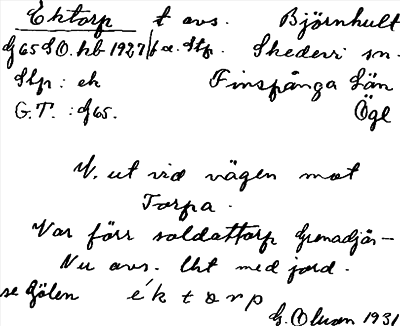 Ektorp t avs. Björnhult
G65 SO. hb 1927 f.a. Stp. Skedevi sn.
Stp: ek Finspånga Län
G.T.: G65. Ögl
V. ut vid vägen mot
Torpa.
Var förr soldattorp Grenadjär-
Nu avs. Uht med jord.
se Gölen éktorp
G. Olson 1931